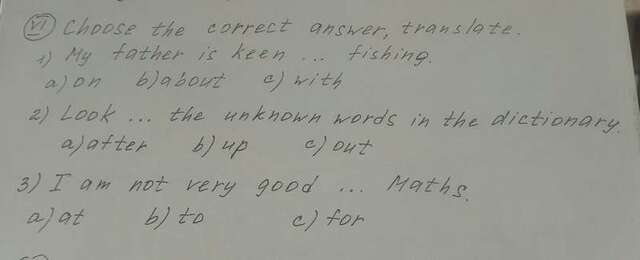 VI Choose the correct answer, translate.
1) My father is keen ... fishing.
a) on b) about c) with
2) Look ... the unknown words in the dictionary.
a) after b) up c) out
3) I am not very good ... Maths.
a) at b) to c) for